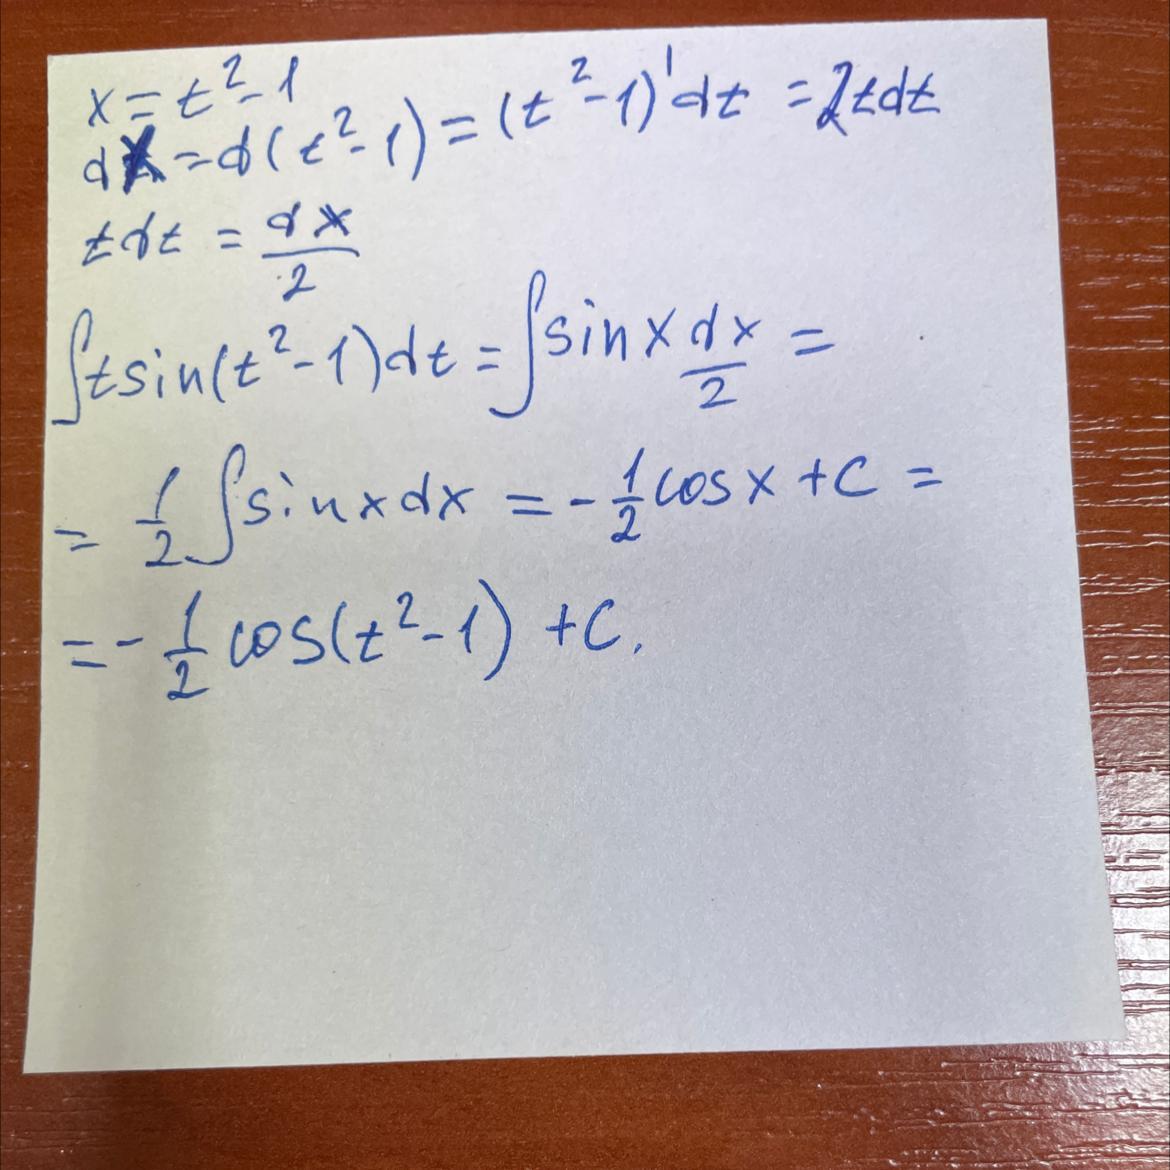 x = t² - 1
dx = d(t² - 1) = (t² - 1)' dt = 2tdt
tdt = dx/2
∫tsin(t² - 1)dt = ∫sinx dx/2 =
= 1/2 ∫sinxdx = - 1/2 cosx + C =
= - 1/2 cos(t² - 1) + C.